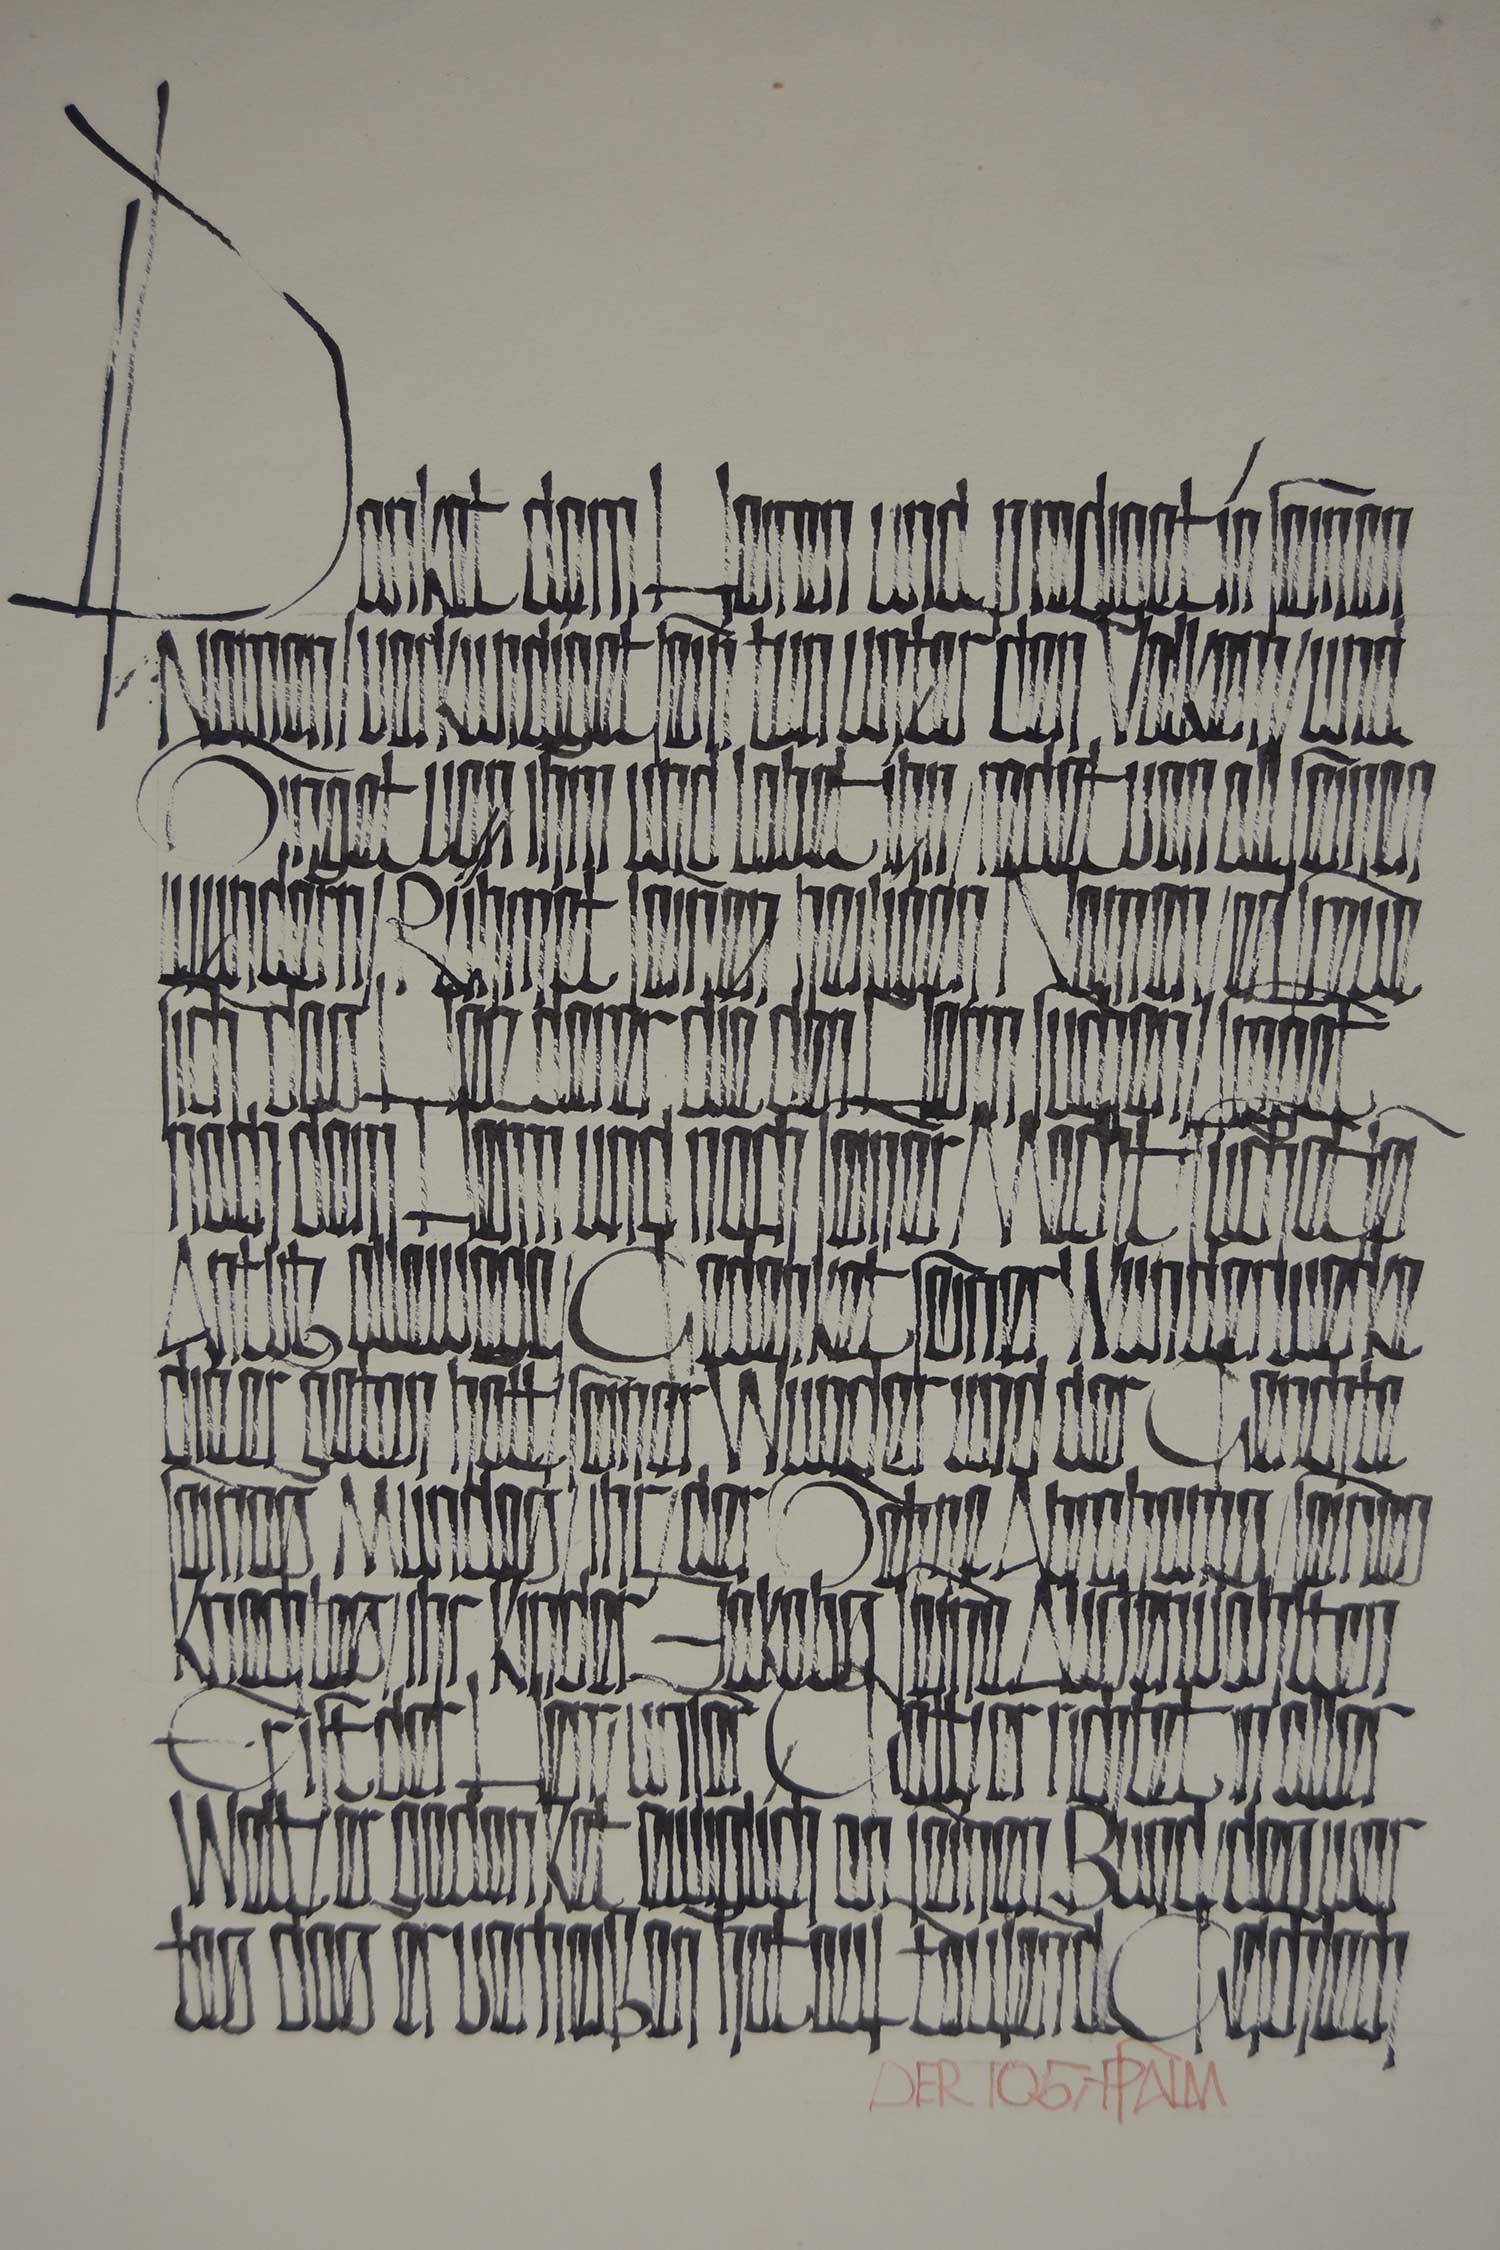 Danket dem Herren und prediget in seinen
Namen / verkündiget sein tun unter den Völkern / und
Singet von ihm und lobet ihn / redet von all seinen
Wundern / Rühmet seinen heiligen Namen / es freue
sich das Herz derer die den Herrn suchen / Fraget
nach dem Herrn und nach seiner Macht / suchet sein
Antlitz allewege / Gedenket seiner Wunderwerke
die er getan hat / seiner Wunder und der Gerichte
seines Mundes / Ihr / der Same Abrahams / seines
Knechtes / ihr Kinder Jakobs seine Auserwählten
Er ist der Herr unser Gott / er richtet in aller
Welt / er gedenket ewiglich an seinen Bund / des wor
tes das er verheißen hat auf tausend Geschlech
DER 105. PSALM